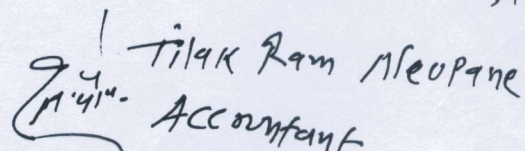 Tilak Ram Neupane
Accountant